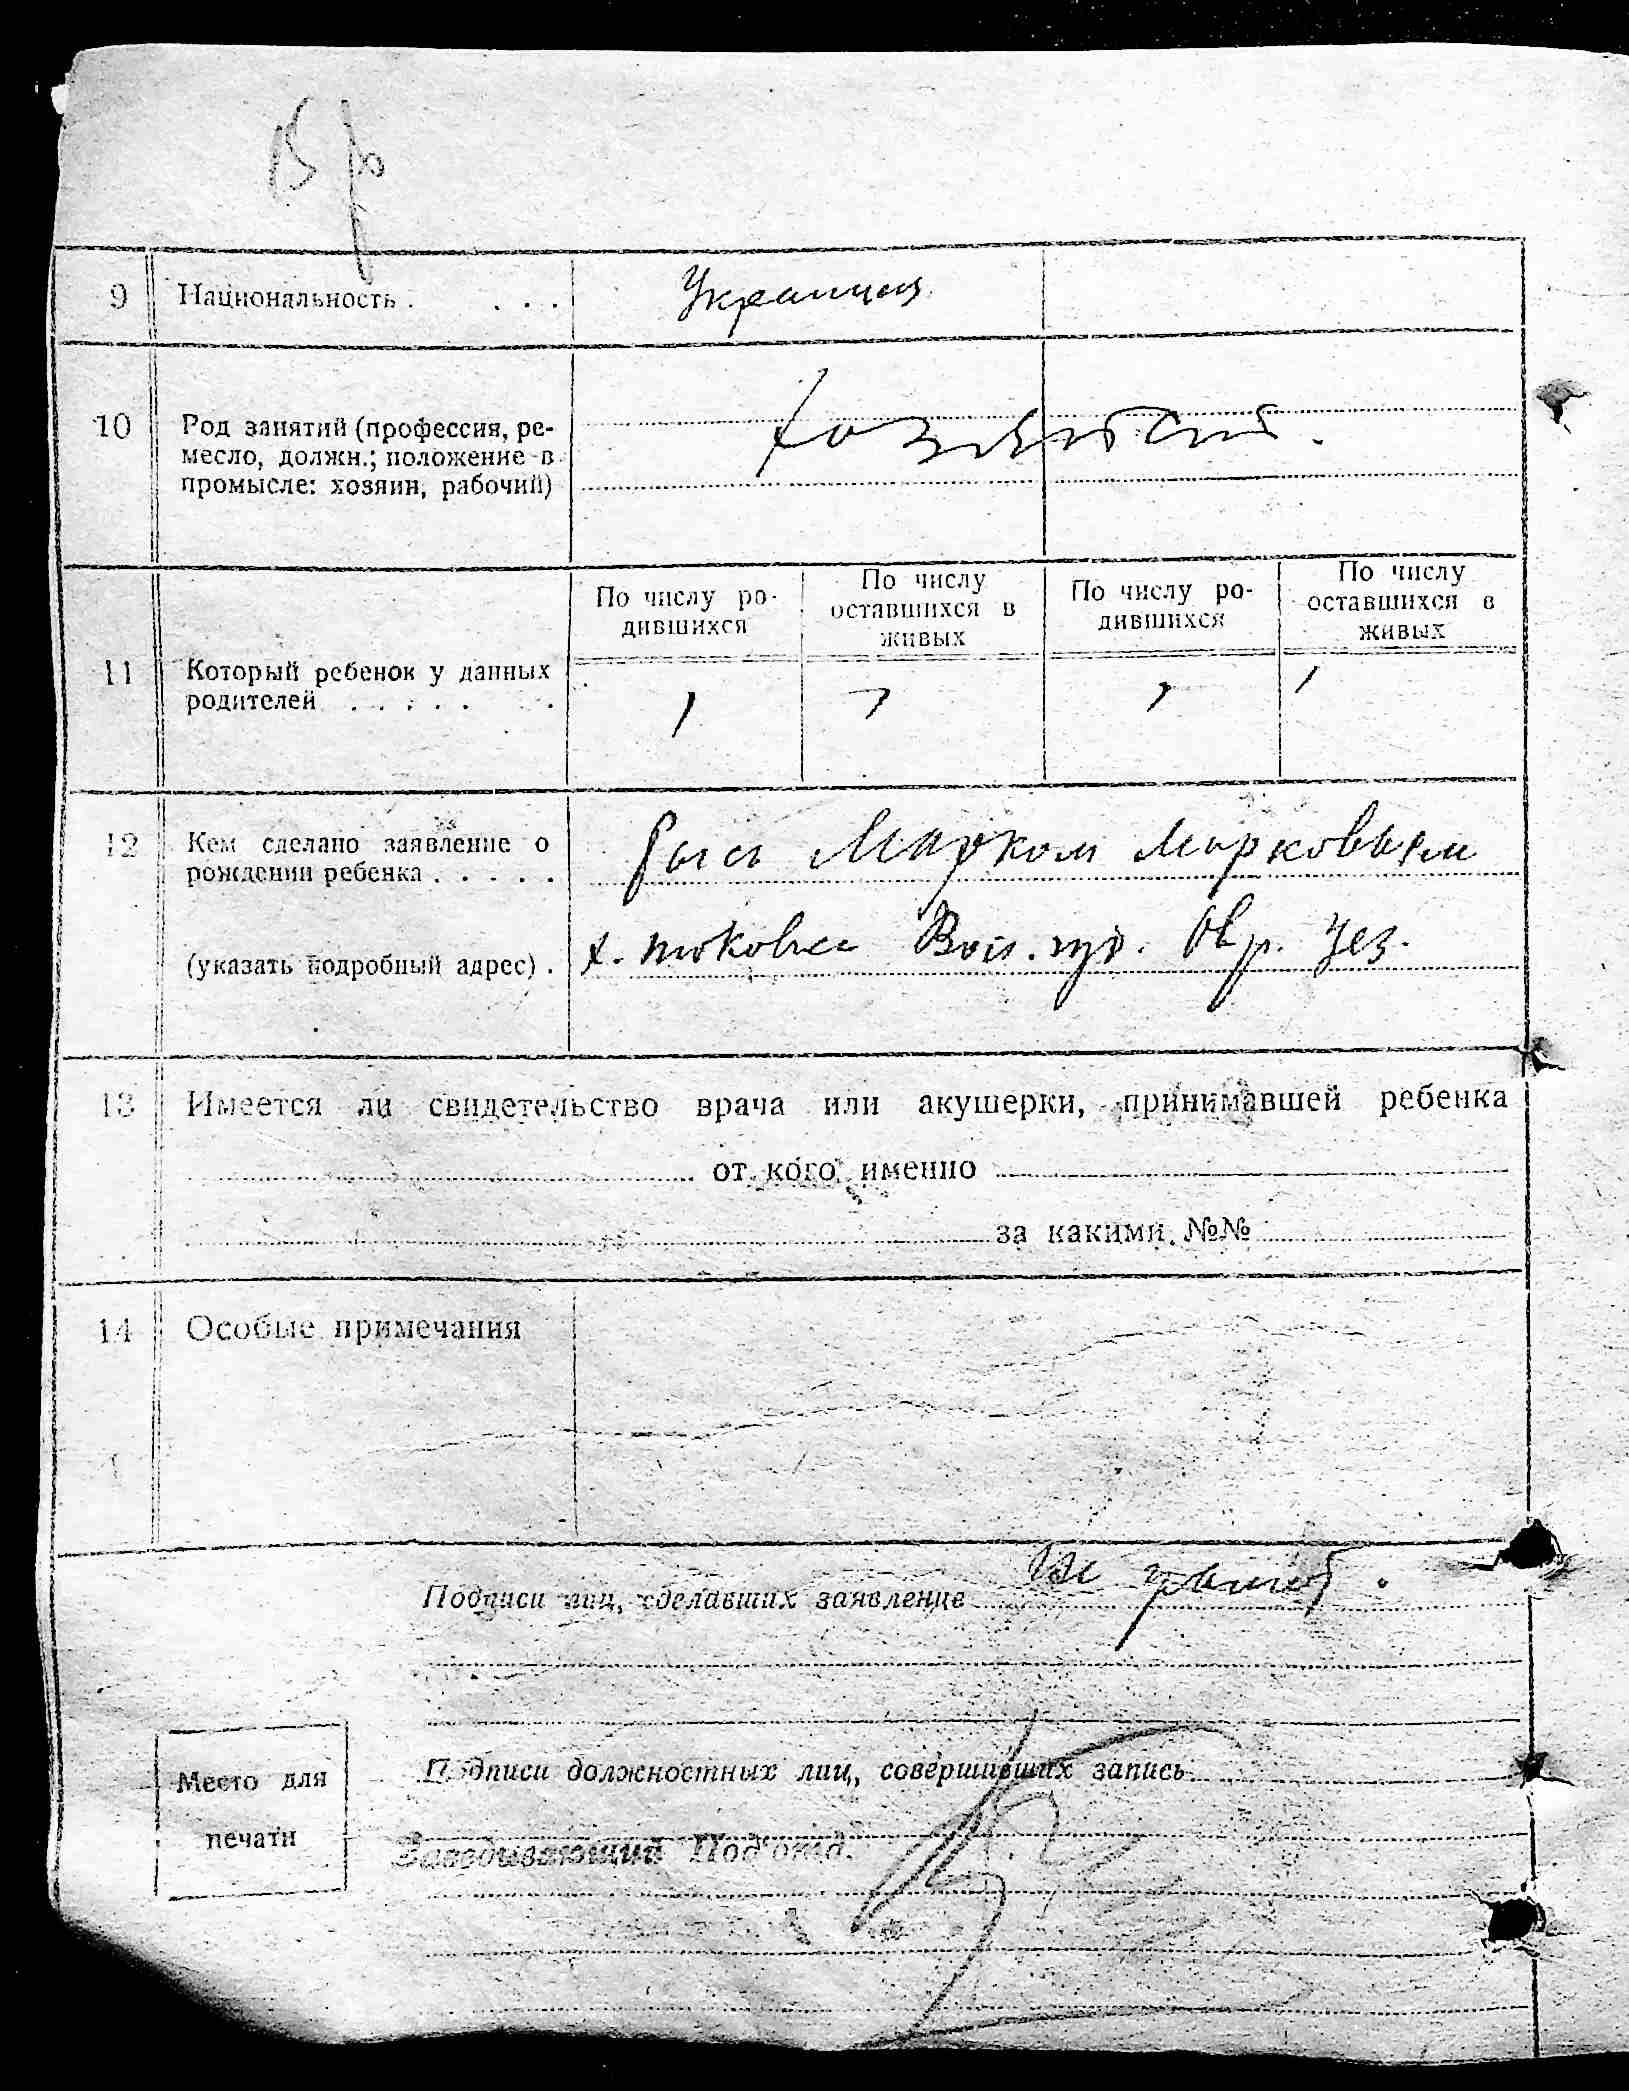 9 Национальность . . . . Украинцы
10 Род занятий (профессия, ре-
месло, должн.; положение в
промысле: хозяин, рабочий)
По числу ро-
дившихся
По числу
оставшихся в
живых
По числу ро-
дившихся
По числу
оставшихся в
живых
11 Который ребенок у данных
родителей . . . . . .
1 1 1 1
12 Кем сделано заявление о
рождении ребенка . . . . .
Марком Марковым
(указать подробный адрес) .
х. губ. Овр. уез.
13 Имеется ли свидетельство врача или акушерки, принимавшей ребенка
от кого именно
за какими №№
14 Особые примечания
Подписи лиц, сделавших заявление
Место для
печати
Подписи должностных лиц, совершивших запись
Заведывающий Под'отд.